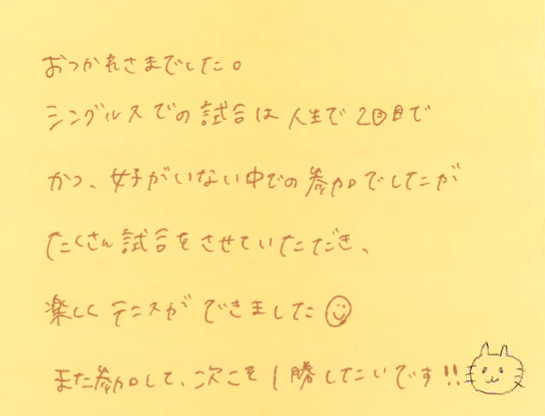 おつかれさまでした。
シングルスでの試合は人生で2回目で
かつ、女子がいない中での参加でしたが
たくさん試合をさせていただき、
楽しくテニスができました
また参加して、次こそ1勝したいです!!